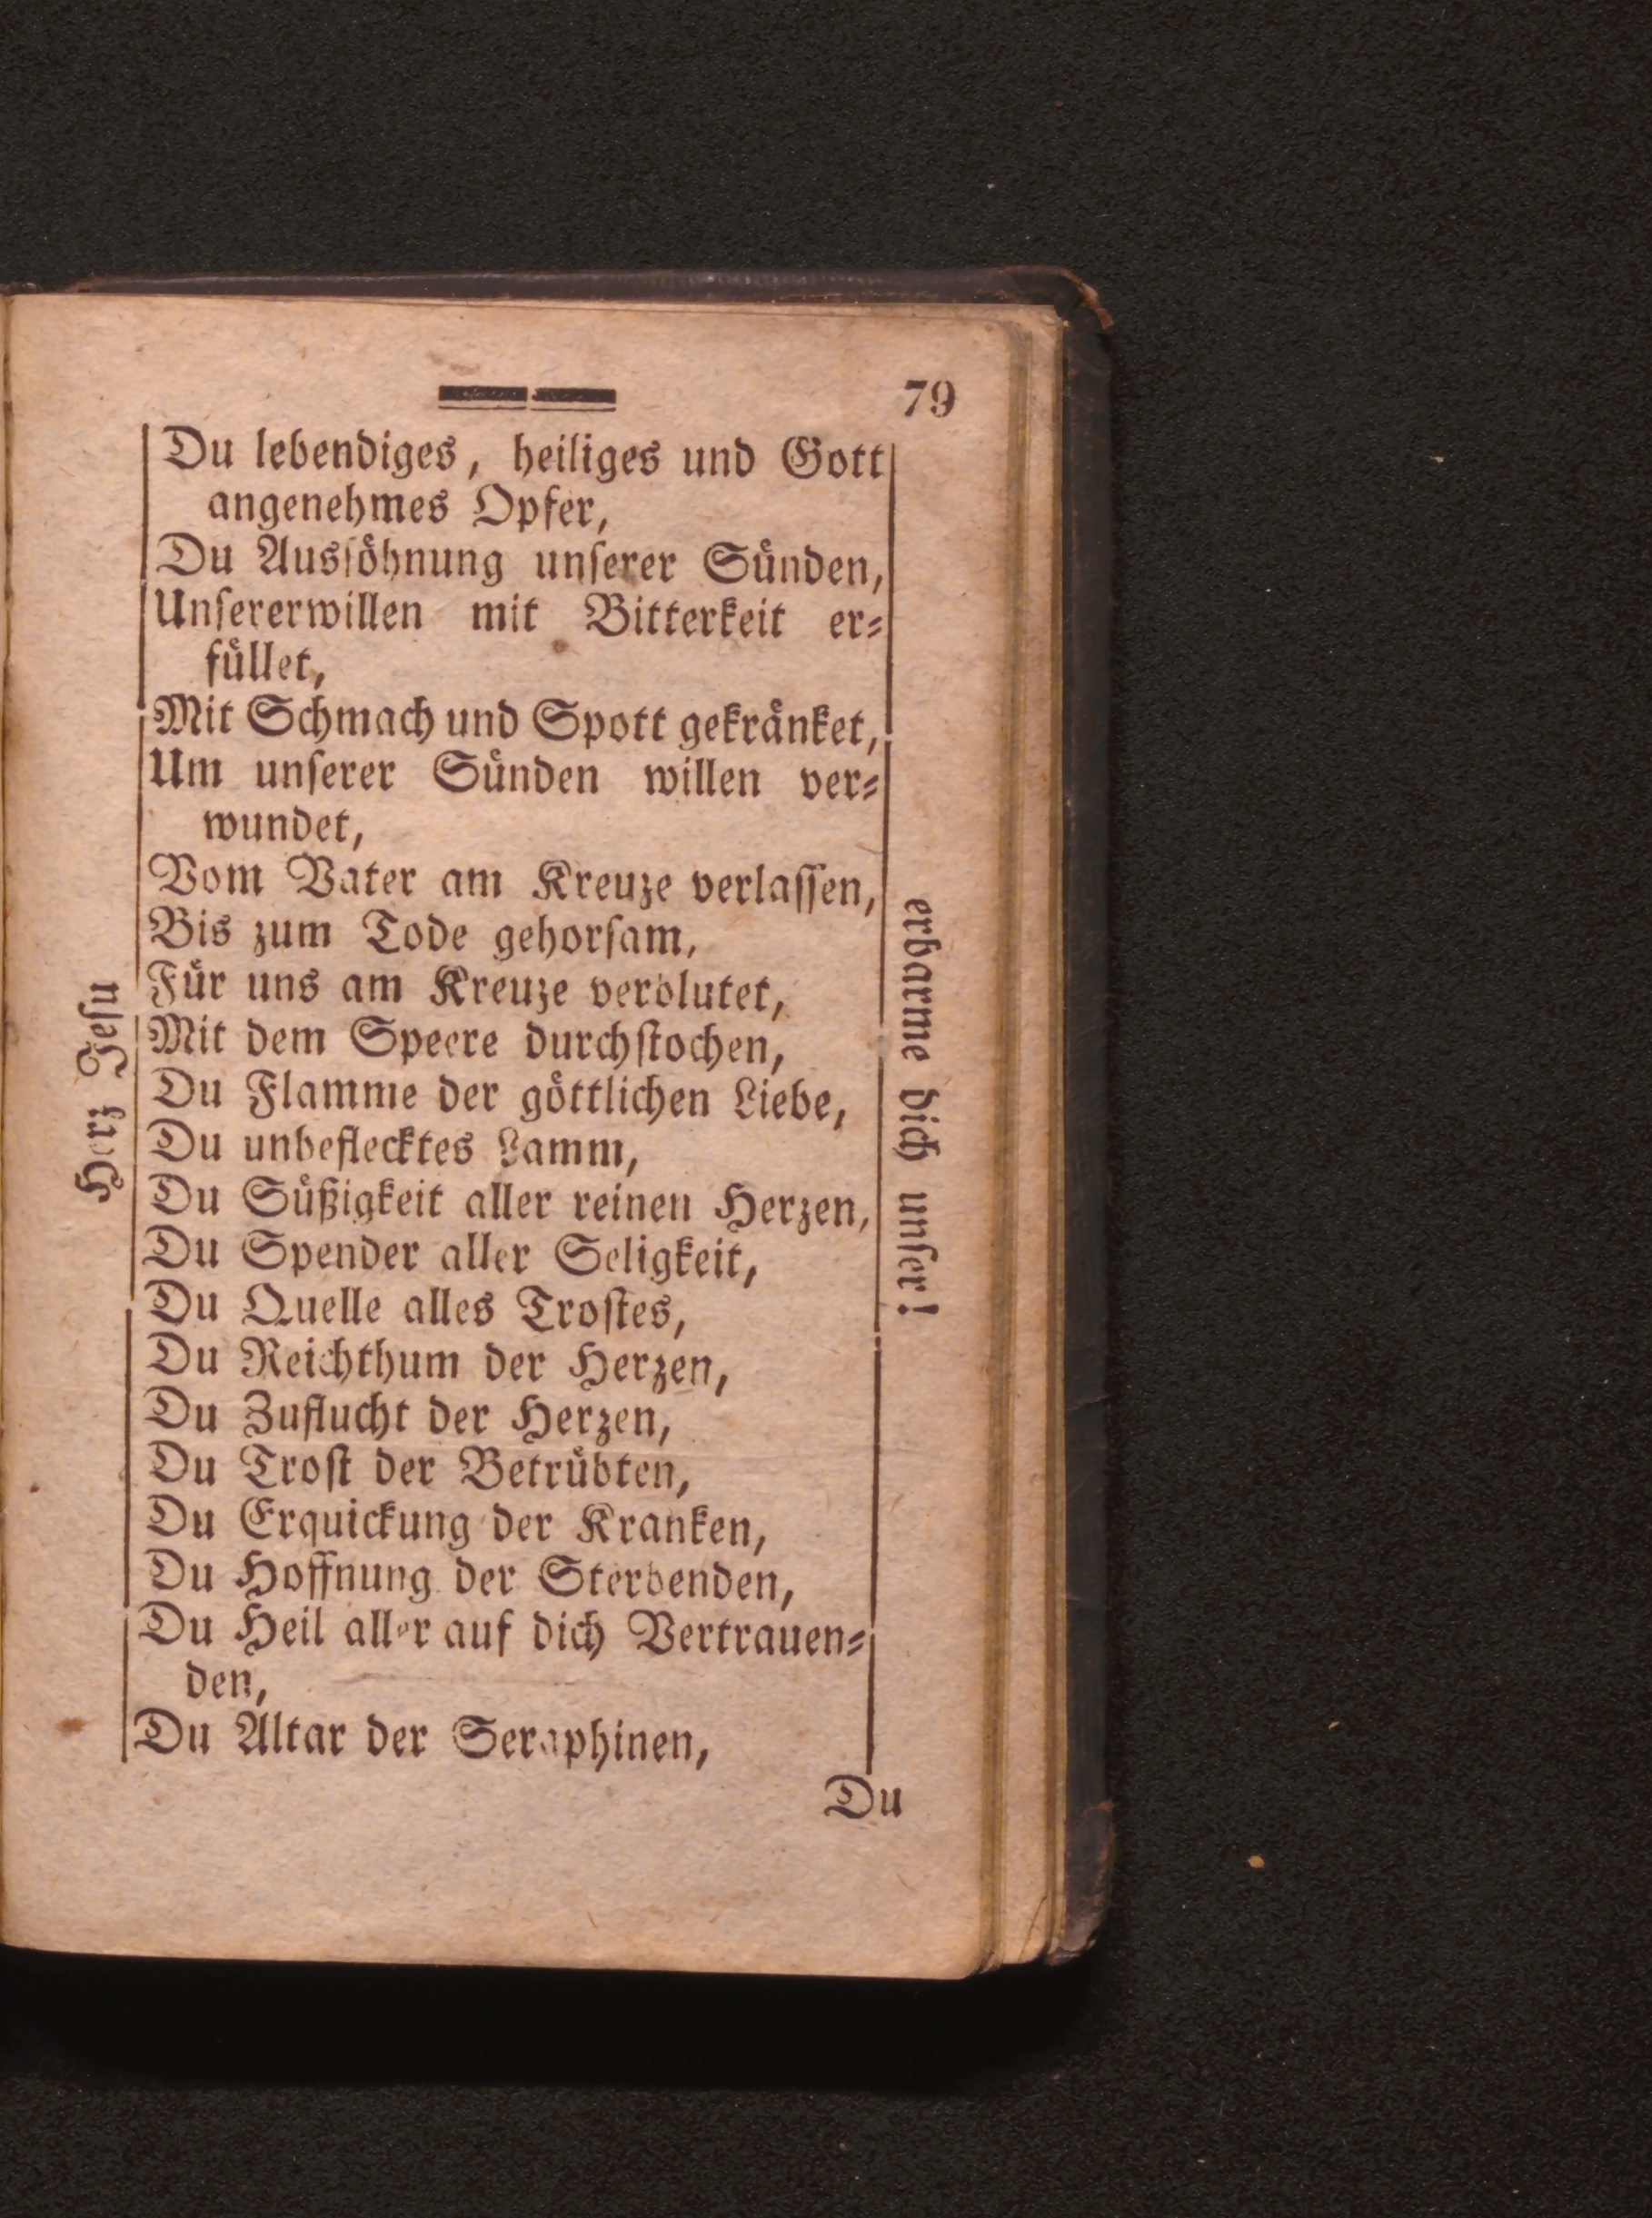 79
Du lebendiges, heiliges und Gott
angenehmes Opfer,
Du Ausſöhnung unſerer Sünden,
Unſererwillen mit Bitterkeit er⸗
füllet,
Mit Schmach und Spott gekränket,
Um unſerer Sünden willen ver⸗
wundet,
Vom Vater am Kreuze verlaſſen,
Bis zum Tode gehorſam,
Für uns am Kreuze verblutet,
Mit dem Speere durchſtochen,
Du Flamme der göttlichen Liebe,
Du unbeflecktes Lamm,
Du Süßigkeit aller reinen Herzen,
Du Spender aller Seligkeit,
Du Quelle alles Troſtes,
Du Reichthum der Herzen,
Du Zuflucht der Herzen,
Du Troſt der Betrübten,
Du Erquickung der Kranken,
Du Hoffnung der Sterbenden,
Du Heil aller auf dich Vertrauen⸗
den,
Du Altar der Seraphinen,
Du
Herz Jeſu
erbarme dich unſer!